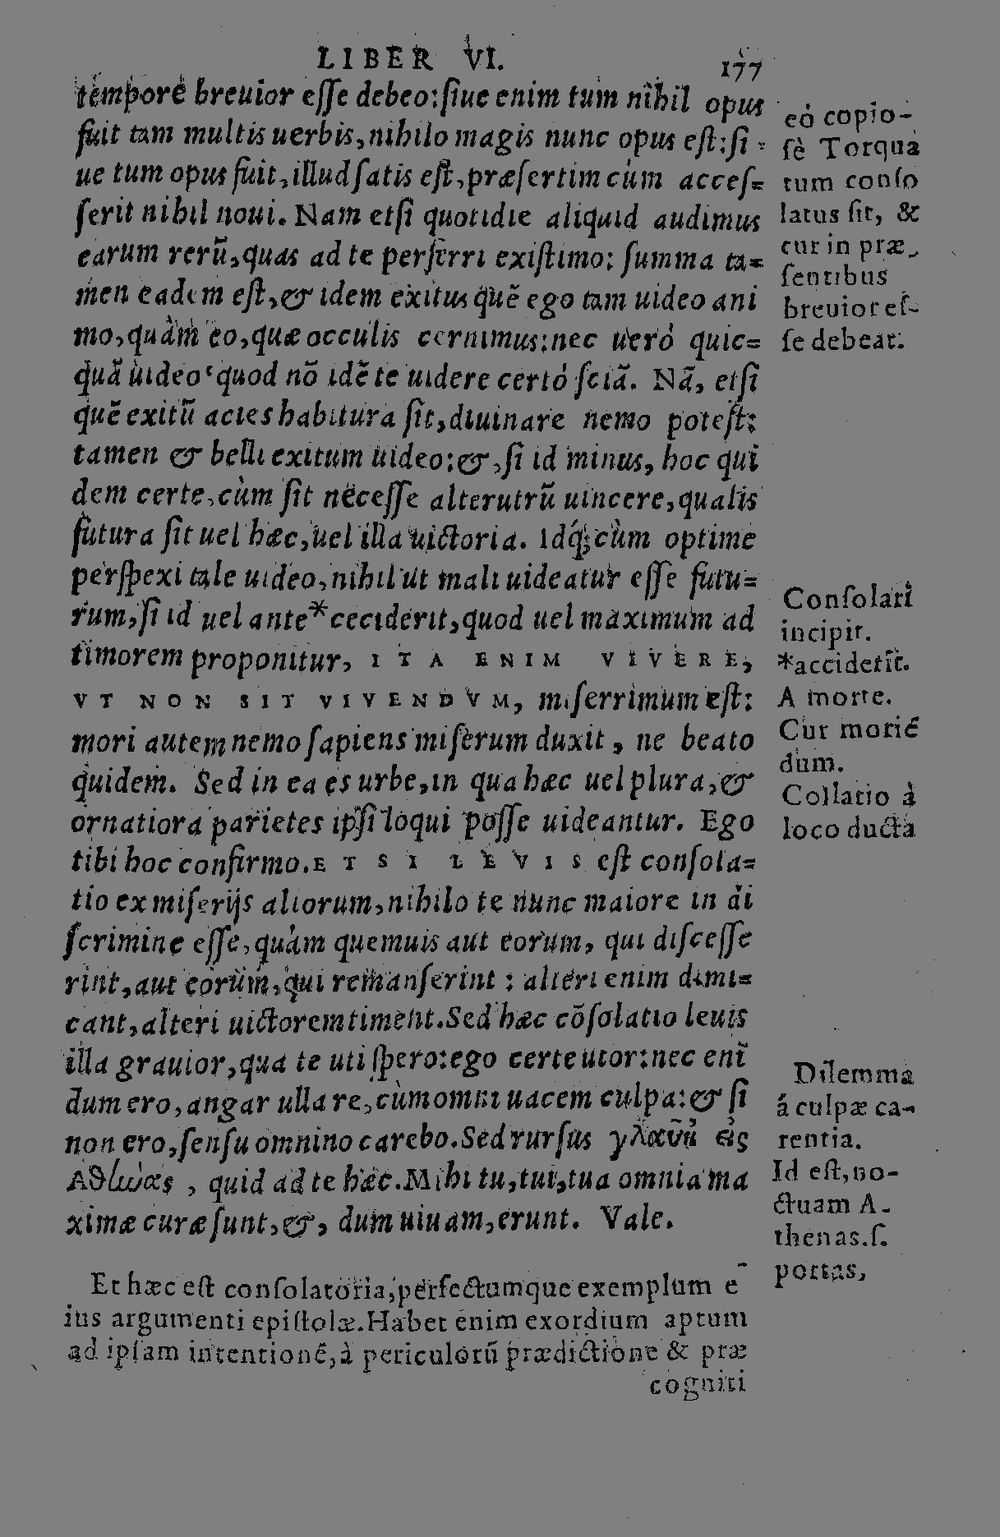 LIBER VI. 177
tempore breuior esse debeo: siue enim tum nihil opus
fuit tam multis uerbis, nihilo magis nunc opus est: si-
ue tum opus fuit, illud satis est, præsertim cùm acces=
serit nihil noui. Nam etsi quotidie aliquid audimus
earum rerū, quas ad te perferri existimo: summa ta=
men eadem est, & idem exitus quē ego tam uideo ani
mo, quàm eo, quæ occulis cernimus: nec uerò quic=
quā uideo quod nō idē te uidere certò sciā. Nā, etsi
quē exitū acies habitura sit, diuinare nemo potest:
tamen & belli exitum uideo: &, si id minus, hoc qui
dem certe, cùm sit necesse alterutrū uincere, qualis
futura sit uel hæc, uel illa uictoria. Idq́; cùm optime
perspexi tale uideo, nihil ut mali uideatur esse futu=
rum, si id uel ante * ceciderit, quod uel maximum ad
timorem proponitur, ITA ENIM VIVERE,
VT NON SIT VIVENDVM, miserrimum est:
mori autem nemo sapiens miserum duxit, ne beato
quidem. Sed in ea es urbe, in qua hæc uel plura, &
ornatiora parietes ipsi loqui posse uideantur. Ego
tibi hoc confirmo. ETSI LEVIS est consola=
tio ex miserijs aliorum, nihilo te nunc maiore in di
scrimine esse, quàm quemuis aut eorum, qui discesse
rint, aut eorum, qui remanserint: alteri enim dimi=
cant, alteri uictorem timent. Sed hæc cōsolatio leuis
illa grauior, qua te uti spero: ego certe utor: nec enī
dum ero, angar ulla re, cùm omni uacem culpa: & si
non ero, sensu omnino carebo. Sed rursus γλαῦκ' εἰς
Αθἠνας, quid ad te hæc. Mihi tu, tui, tua omnia ma
ximæ curæ sunt, &, dum uiuam, erunt. Vale.
Et hæc est consolatoria, perfectumque exemplum e-
ius argumenti epistolæ. Habet enim exordium aptum
ad ipsam intentionē, à periculorū prædictione & præ
cogniti
eò copio-
sè Torqua
tum conso
latus sit, &
cur in præ-
sentibus
breuior es-
se debeat.
Consolari
incipit.
*acciderit.
A morte.
Cur moriē
dum.
Collatio à
loco ducta
Dilemma
á culpæ ca-
rentia.
Id est, no-
ctuam A-
thenas. s.
portas,